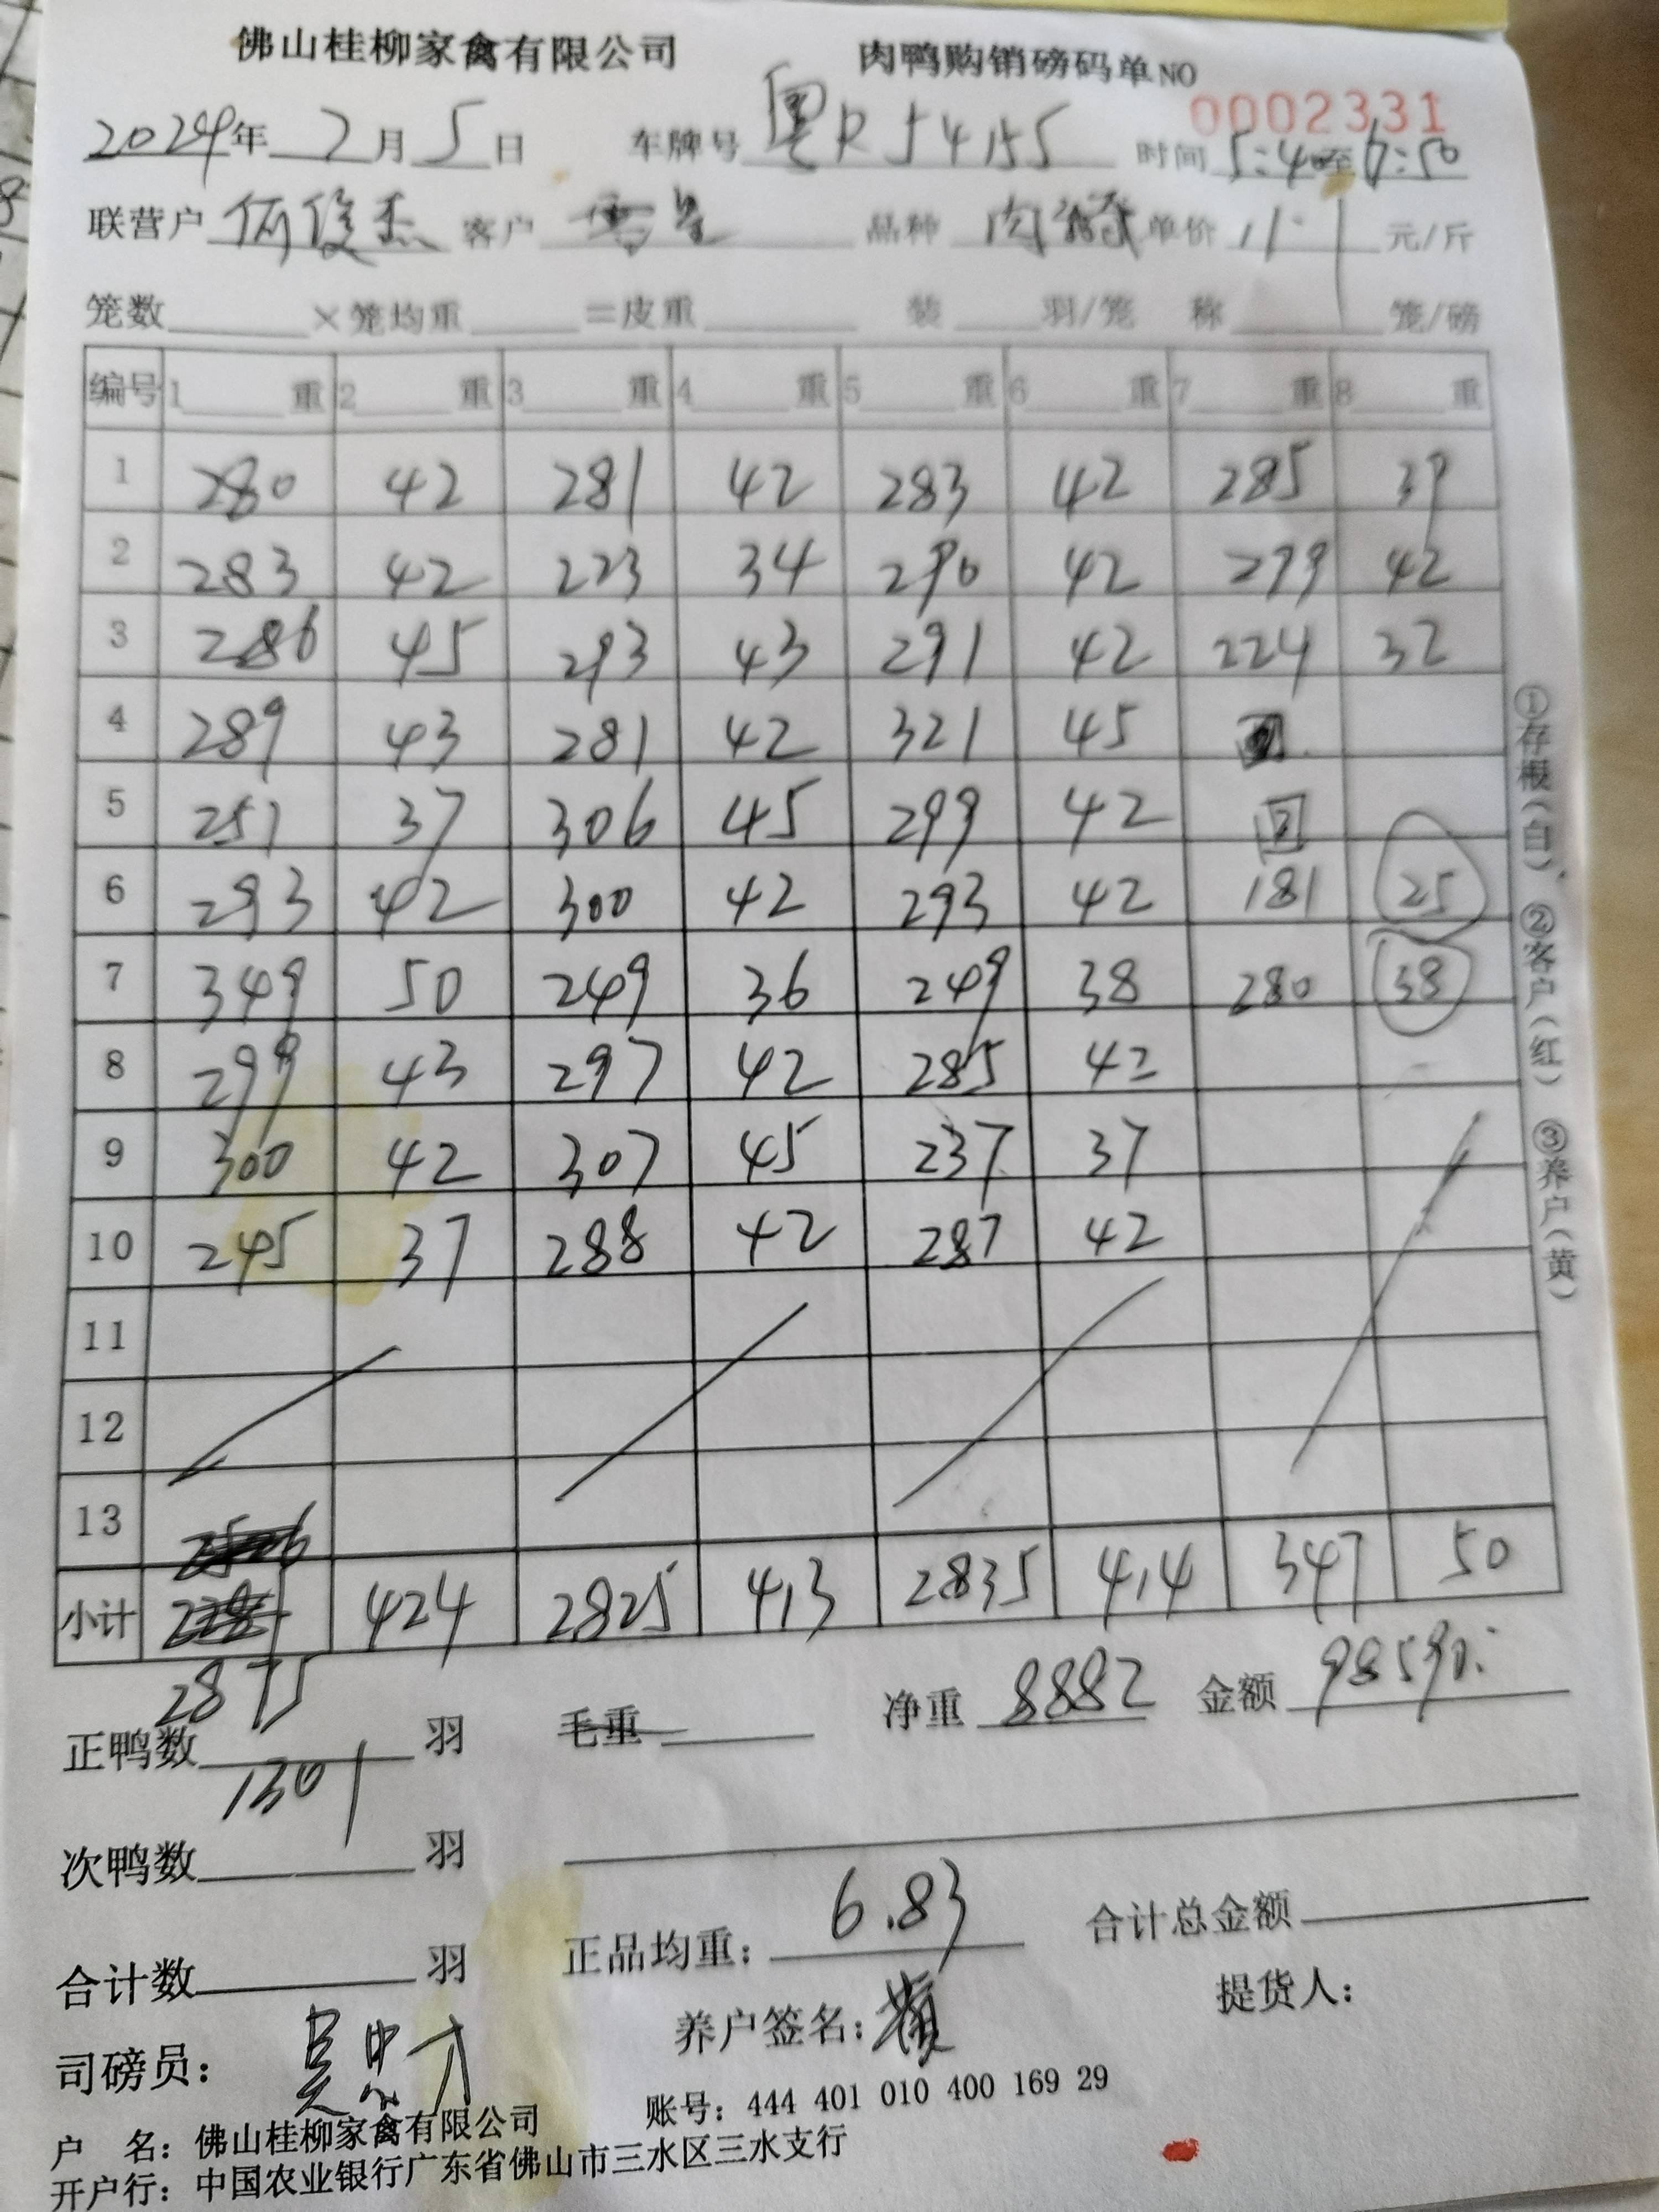 佛山桂柳家禽有限公司 肉鸭购销磅码单 NO 0002331
2024年 2月 5日 车牌号 粤R54155 时间 5:40至6:50
联营户 何俊杰 客户 品种 肉 单价 11.1 元/斤
笼数 ×笼均重 =皮重 装 羽/笼 称 笼/磅
编号 1 重 2 重 3 重 4 重 5 重 6 重 7 重 8 重
1 280 42 281 42 283 42 285 39
2 283 42 223 34 290 42 299 42
3 286 45 293 43 291 42 224 32
4 289 43 281 42 321 45
5 251 37 306 45 299 42 回
6 293 42 300 42 293 42 181 25
7 349 50 249 36 249 38 280 38
8 299 43 297 42 285 42
9 300 42 307 45 237 37
10 245 37 288 42 287 42
11
12
13
小计 2875 424 2825 413 2835 414 347 50
正鸭数 1301 羽 毛重 净重 8882 金额 98590.
次鸭数 羽
合计数 羽 正品均重: 6.83 合计总金额
司磅员: 养户签名: 提货人:
户 名: 佛山桂柳家禽有限公司 账号: 444 401 010 400 169 29
开户行: 中国农业银行广东省佛山市三水区三水支行
①存根(白)、②客户(红) ③养户(黄)